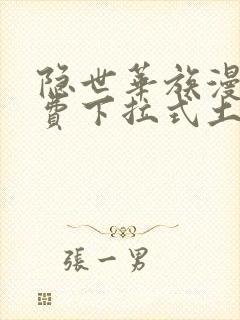 隐世华族漫
费下拉式土
張一男